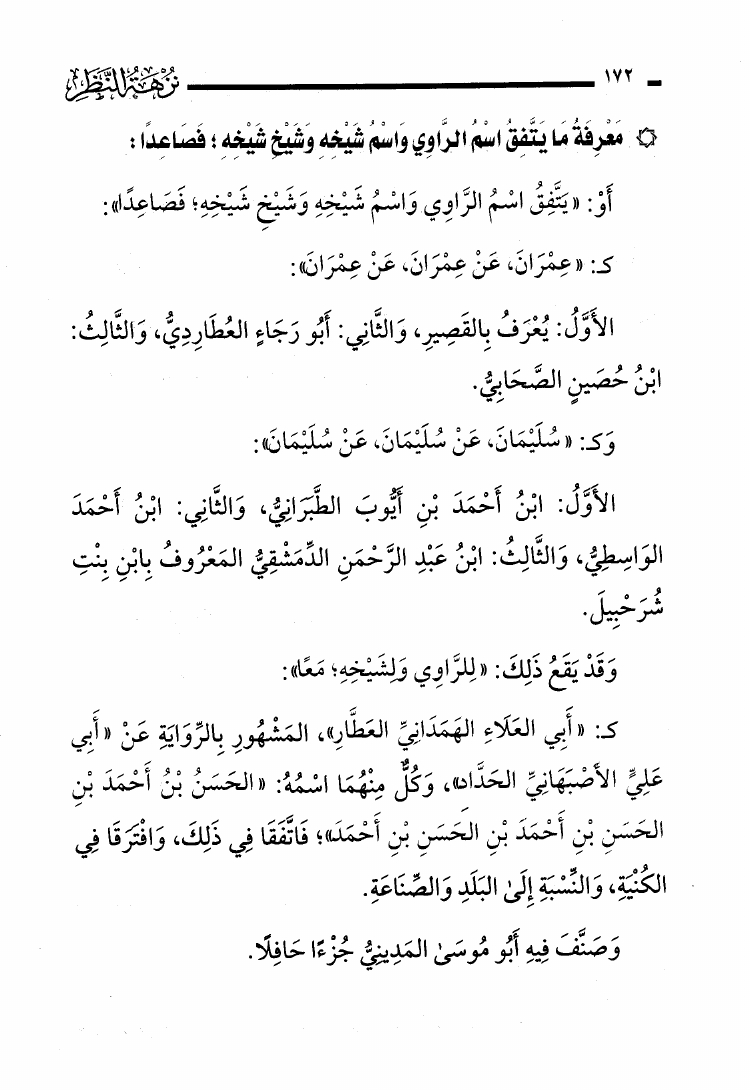 ١٧٢ نُزْهَةُ النَّظَرِ
۞ مَعْرِفَةُ مَا يَتَّفِقُ اسْمُ الرَّاوِي وَاسْمُ شَيْخِهِ وَشَيْخِ شَيْخِهِ ؛ فَصَاعِدًا :
أَوْ: «يَتَّفِقُ اسْمُ الرَّاوِي وَاسْمُ شَيْخِهِ وَشَيْخِ شَيْخِهِ؛ فَصَاعِدًا»:
كـ: «عِمْرَانَ، عَنْ عِمْرَانَ، عَنْ عِمْرَانَ»:
الأَوَّلُ: يُعْرَفُ بِالقَصِيرِ، وَالثَّانِي: أَبُو رَجَاءٍ العُطَارِدِيُّ، وَالثَّالِثُ:
ابْنُ حُصَيْنٍ الصَّحَابِيُّ.
وَكـ: «سُلَيْمَانَ، عَنْ سُلَيْمَانَ، عَنْ سُلَيْمَانَ»:
الأَوَّلُ: ابْنُ أَحْمَدَ بْنِ أَيُّوبَ الطَّبَرَانِيُّ، وَالثَّانِي: ابْنُ أَحْمَدَ
الوَاسِطِيُّ، وَالثَّالِثُ: ابْنُ عَبْدِ الرَّحْمَنِ الدِّمَشْقِيُّ المَعْرُوفُ بِابْنِ بِنْتِ
شُرَحْبِيلَ.
وَقَدْ يَقَعُ ذَلِكَ: «لِلرَّاوِي وَلِشَيْخِهِ؛ مَعًا»:
كـ: «أَبِي العَلَاءِ الهَمَدَانِيِّ العَطَّارِ»، المَشْهُورِ بِالرِّوَايَةِ عَنْ «أَبِي
عَلِيٍّ الأَصْبَهَانِيِّ الحَدَّادِ»، وَكُلٌّ مِنْهُمَا اسْمُهُ: «الحَسَنُ بْنُ أَحْمَدَ بْنِ
الحَسَنِ بْنِ أَحْمَدَ بْنِ الحَسَنِ بْنِ أَحْمَدَ»؛ فَاتَّفَقَا فِي ذَلِكَ، وَافْتَرَقَا فِي
الكُنْيَةِ، وَالنِّسْبَةِ إِلَىٰ البَلَدِ وَالصِّنَاعَةِ.
وَصَنَّفَ فِيهِ أَبُو مُوسَىٰ المَدِينِيُّ جُزْءًا حَافِلًا.